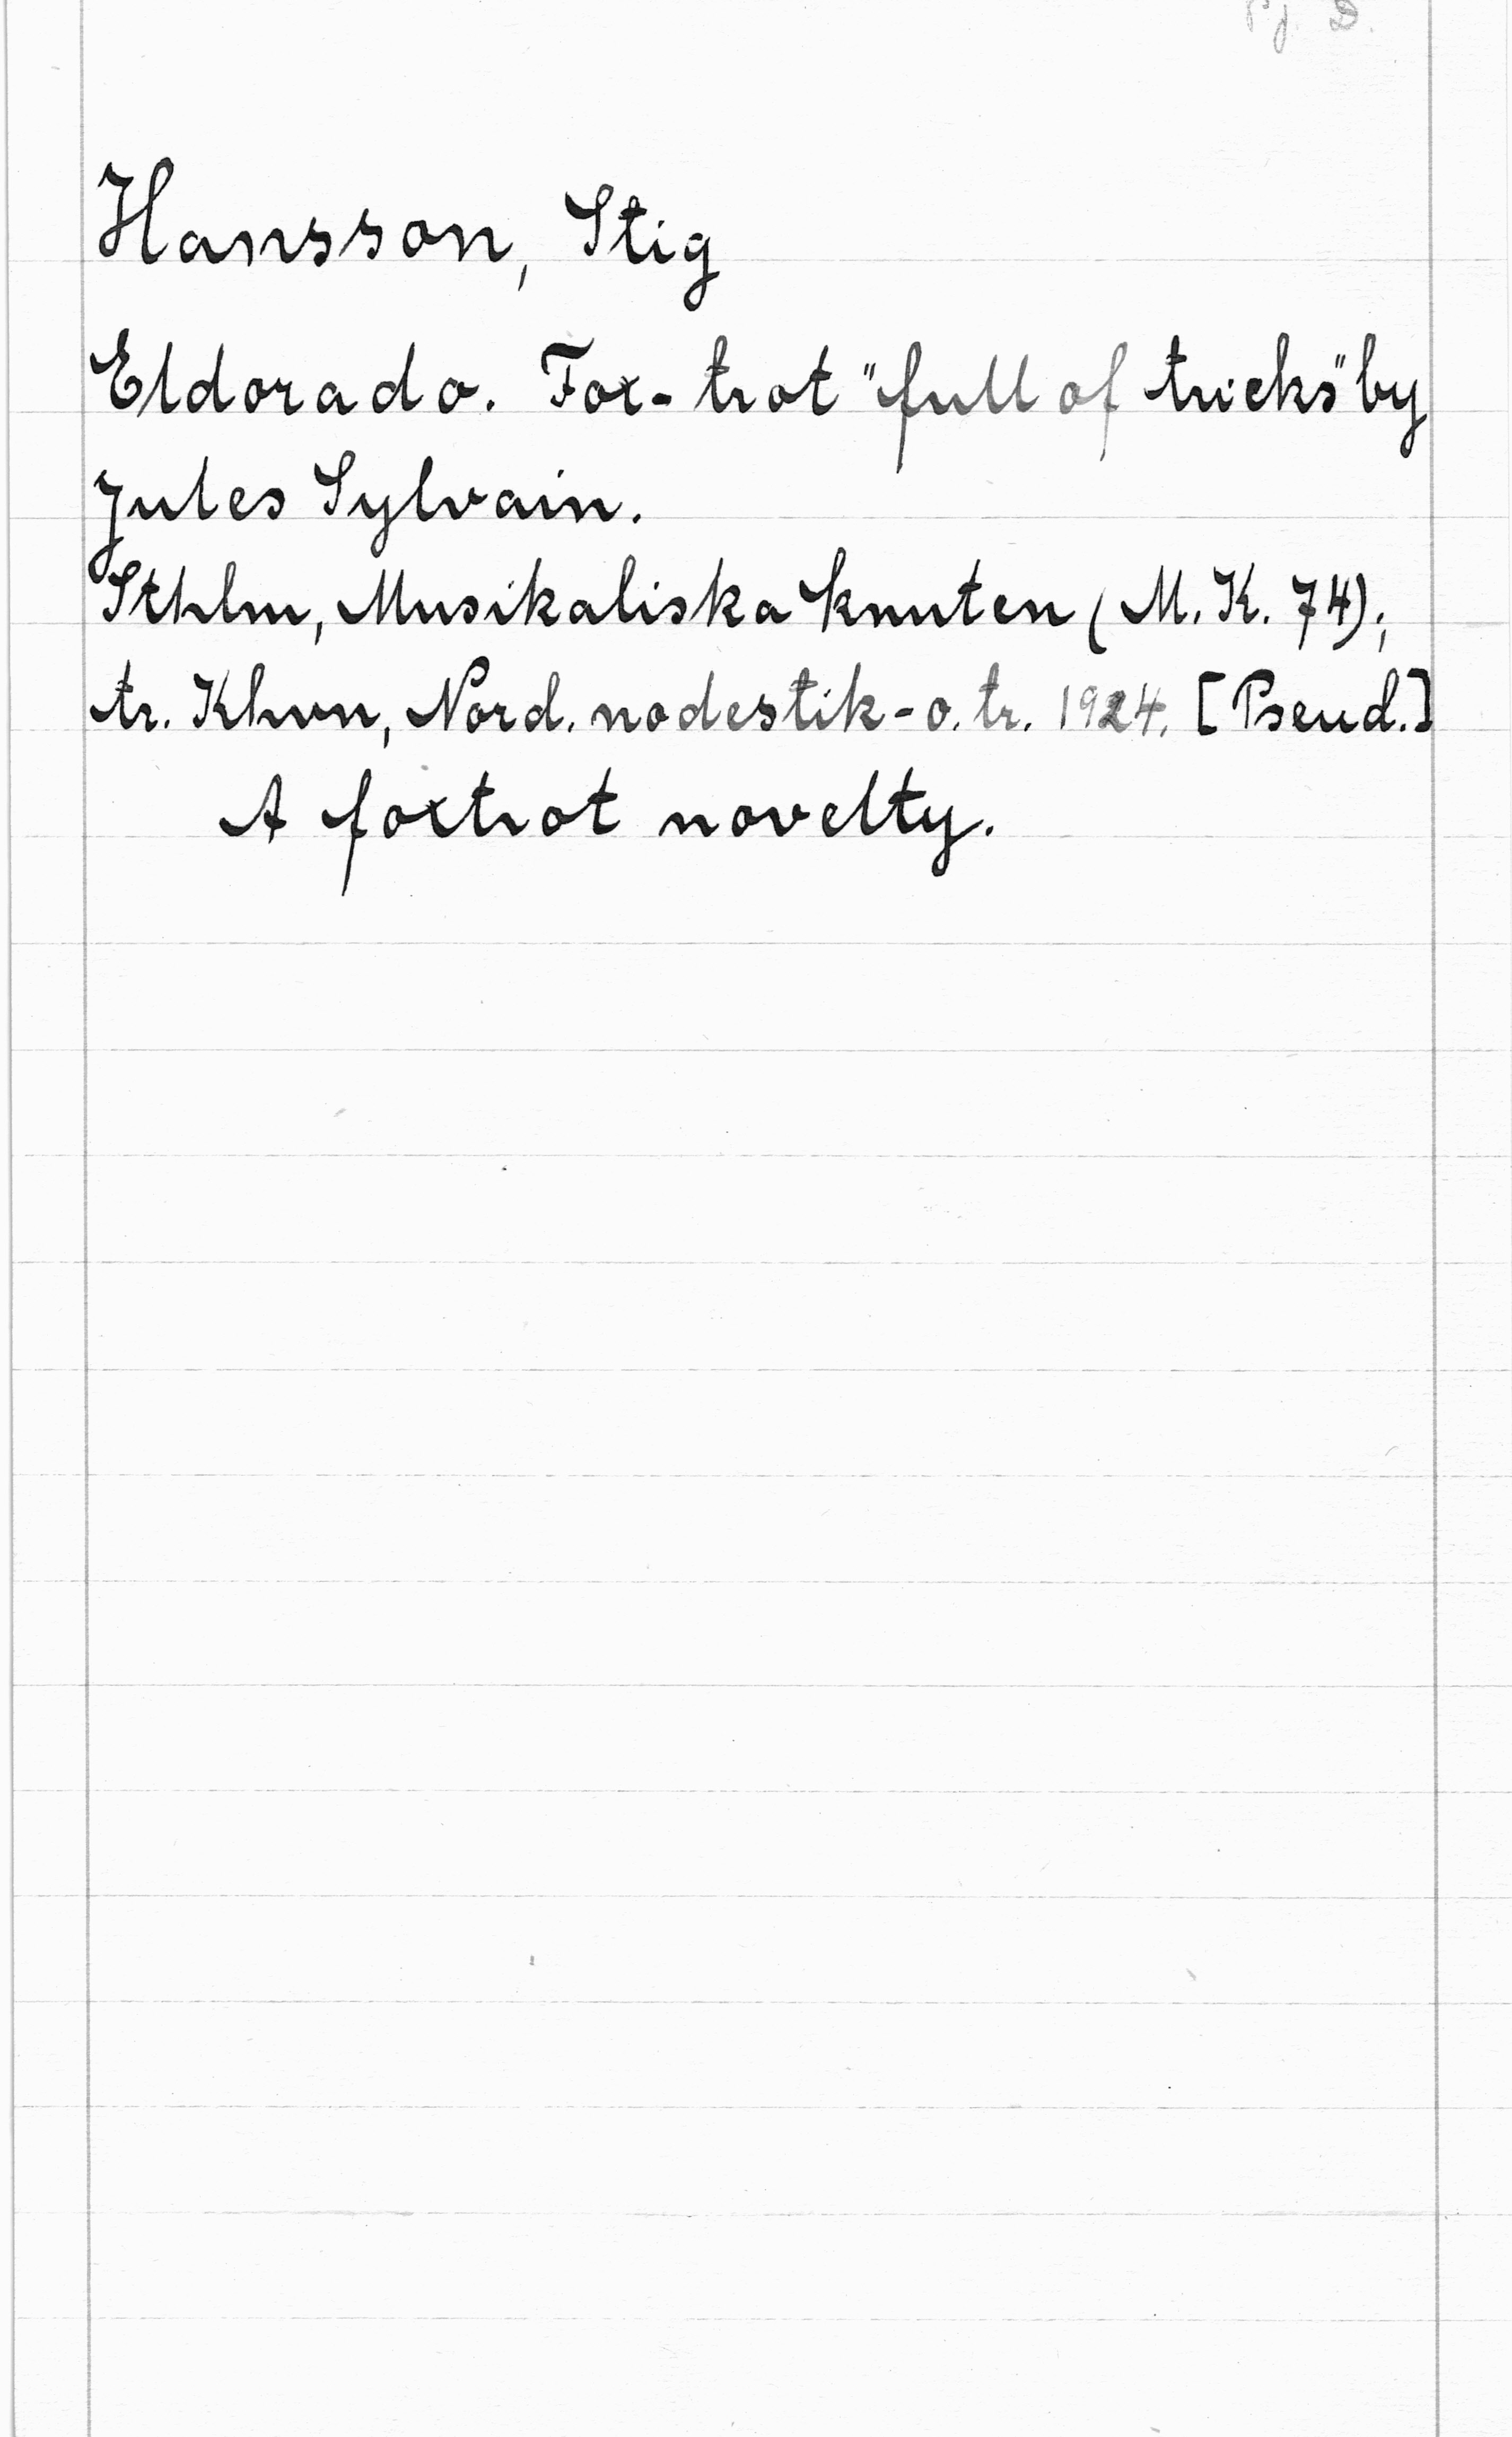 Pj. D.
Hansson, Stig
Eldorado. Fox-trot "full of tricks" by
Jules Sylvain.
Sthlm, Musikaliska knuten (M. K. 74);
tr. Khvn, Nord. nodestik- o. tr. 1924. [Pseud.]
A foxtrot novelty.